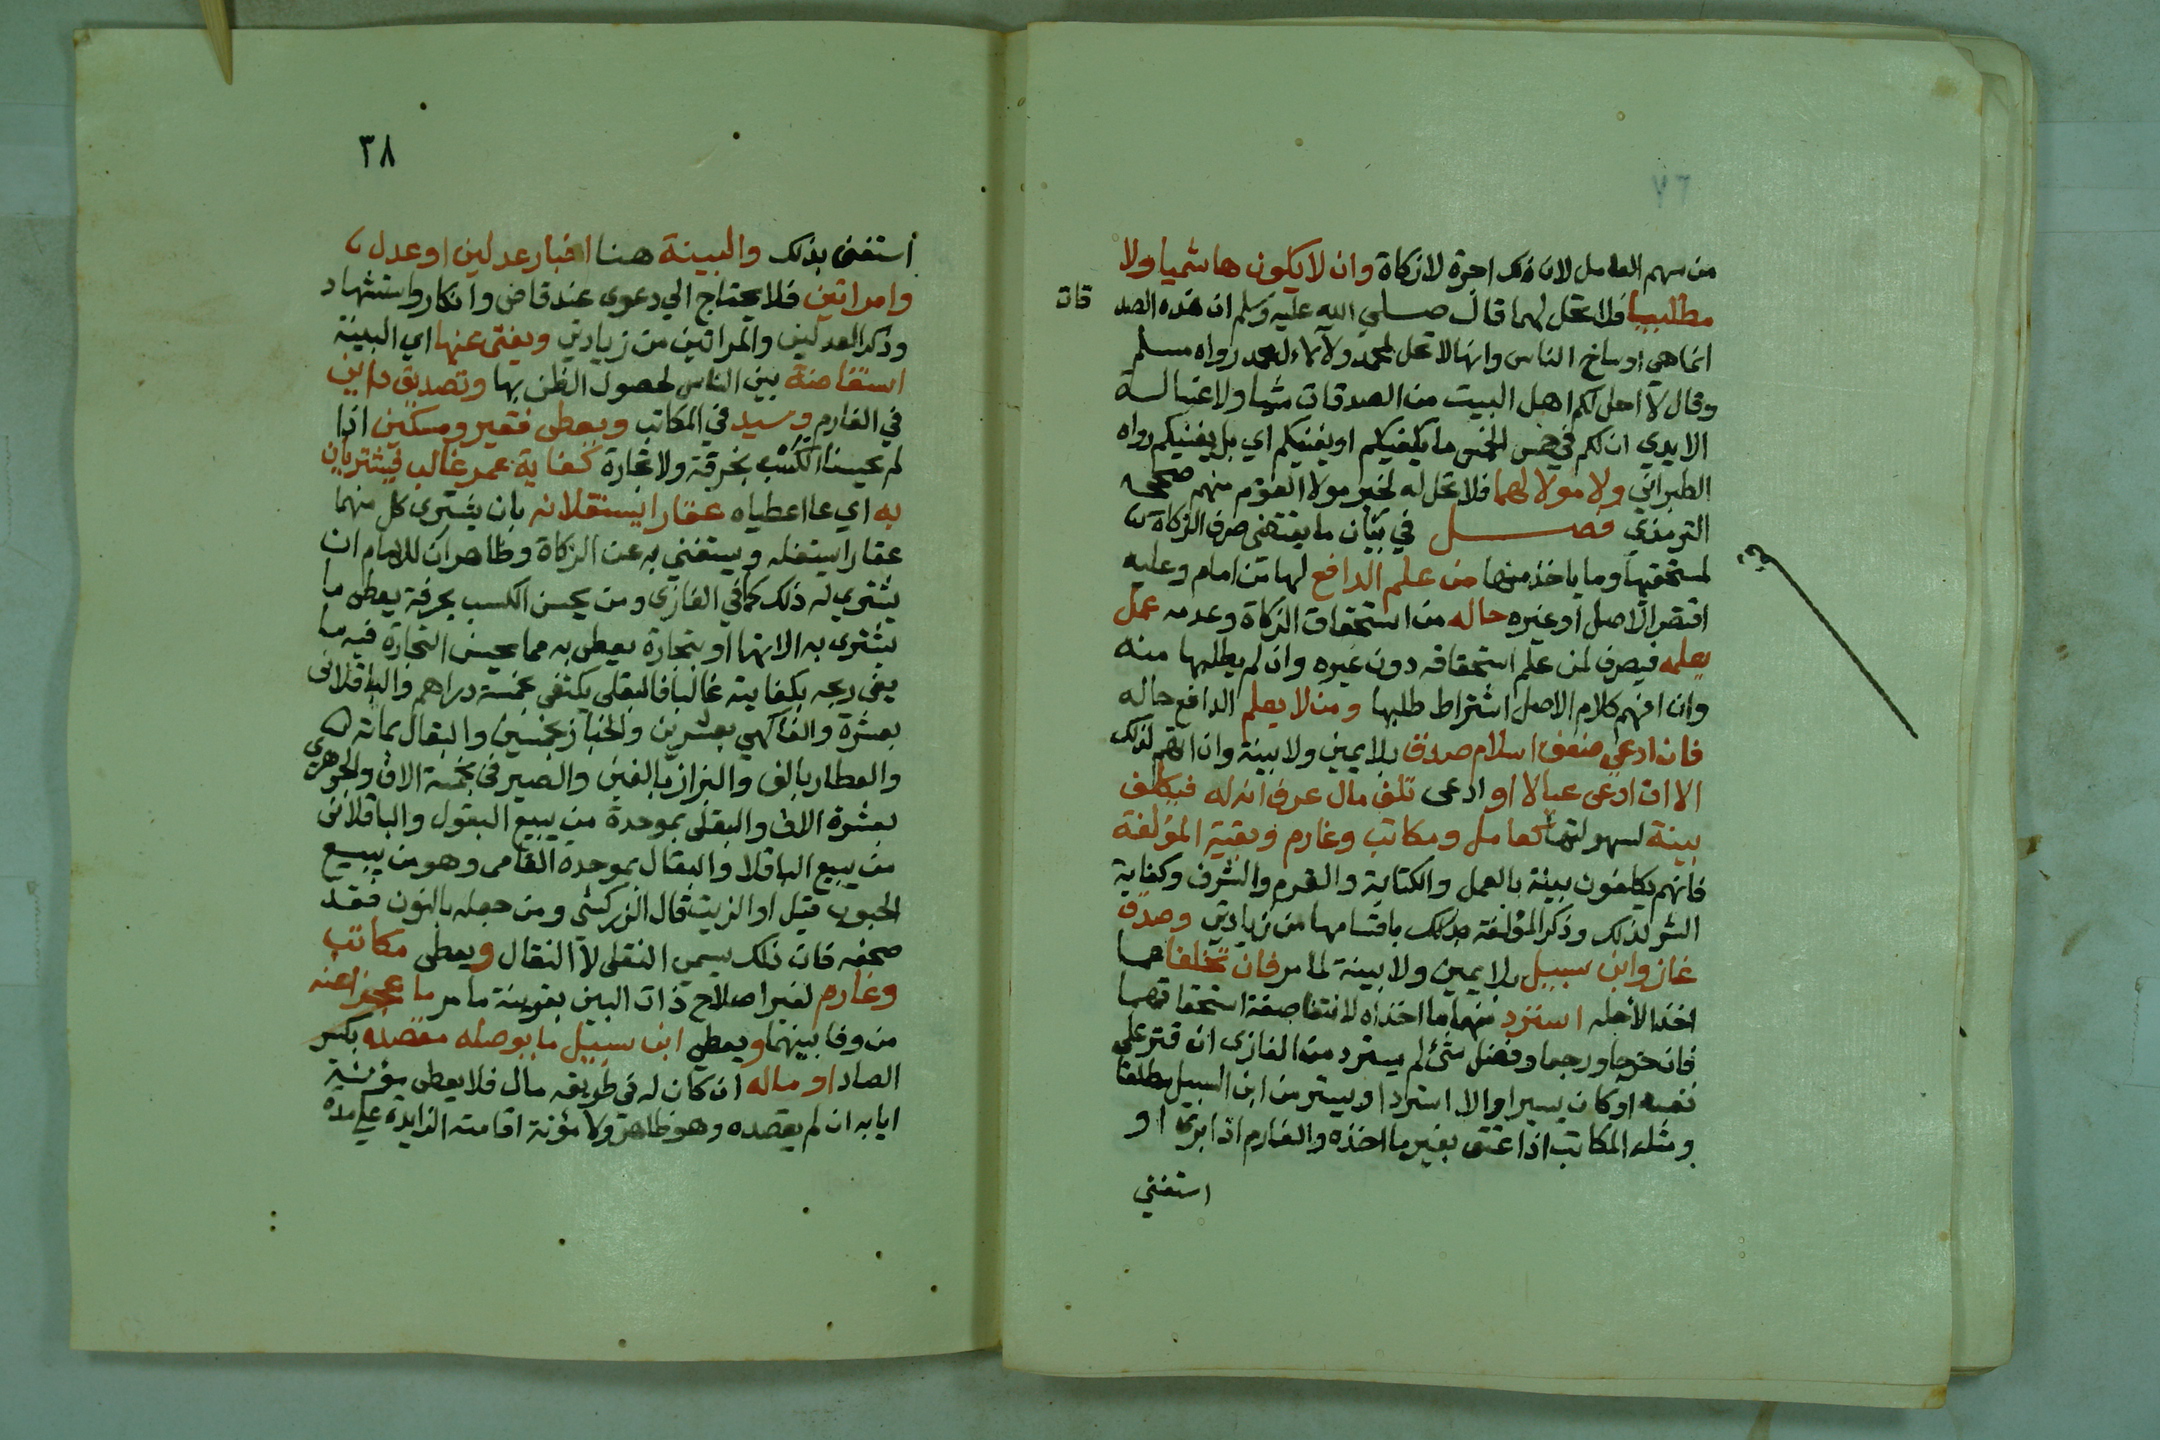 ٧٦
من سهم العامل لان ذلك اجرة لا زكاة وان لا يكون هاشميا ولا
مطلبيا فلا تحل لهما قال صلي الله عليه وسلم ان هذه الصد قات
انما هي اوساخ الناس وانها لا تحل لمحمد ولا لال محمد رواه مسلم
وقال لا احل لكم اهل البيت من الصدقات شيا ولا غسالة
الايدي ان لكم في خمس الخمس ما يكفيكم او يغنيكم اي بل يغنيكم رواه
الطبراني ولا مولا لهما فلا تحل له لخبر مولا القوم منهم صححه
الترمذي فصل في بيان ما يقتضي صرف الزكاة
لمستحقيها وما ياخذ منها من علم الدافع لها من امام وعليه
اقتصر الاصل او غيره حاله من استحقاق الزكاة وعدمه عمل
بعلمه فيصرف لمن علم استحقاقه دون غيره وان لم يطلبها منه
وان افهم كلام الاصل اشتراط طلبها ومن لا يعلم الدافع حاله
فان ادعي ضعف اسلام صدق بلا يمين ولا بينة وان اتهم لذلك
الا ان ادعى عيالا او ادعى تلف مال عرف انه له فيكلف
بينة لسهولتها كعامل ومكاتب وغارم وبقية المؤلفة
فانهم يكلفون بينة بالعمل والكتابة والغرم والشرف وكفاية
الشر لذلك وذكر المؤلفة باقسامها من زيادتي وصدق
غاز وابن سبيل بلا يمين ولا بينة لما مر فان تخلفا عما
اخذا لأجله استرد منهما ما اخذاه لانتفا صفة استحقاقهما
فان خرجا ورجعا وفضل شئ لم يسترد من الغازى ان قتر على
نفسه او كان يسيرا والا استرد ويسترد من ابن السبيل مطلقا
ومثله المكاتب اذا عتق بغير ما اخذه والغارم اذا ابرئ او
استغني
٣٨
استغنى بذلك والبينة هنا اخبار عدلين او عدل
وامراتين فلا يحتاج الي دعوى عند قاض وانكار واستشهاد
وذكر العدلين والمراتين من زيادتي ويغني عنها اي البينة
استفاضة بين الناس لحصول الظن بها وتصديق داين
في الغارم وسيد في المكاتب ويعطى فقير ومسكين اذا
لم يحسنا الكسب بحرفة ولا تجارة كفاية عمر غالب فيشتريان
به اي بما اعطياه عقارا يستغلانه بان يشترى كل منهما
عقارا يستغله ويستغني به عن الزكاة وظاهر ان للامام ان
يشتري له ذلك كما في الغازى ومن يحسن الكسب بحرفة يعطى ما
يشترى به الاتها او بتجارة يعطى به مما يحسن التجارة فيه ما
يفي ربحه بكفايته غالبا فالبقلي يكتفي بخمسة دراهم والباقلانى
بعشرة والفاكهي بعشرين والخباز بخمسين والبقال بمائة
والعطار بالف والبزاز بالفين والصيرفى بخمسة الاف والجوهري
بعشرة الاف والبقلى بموحدة من يبيع البقول والباقلانى
من يبيع الباقلا والبقال بموحدة الفامى وهو من يبيع
الحبوب قيل او الزيت قال الزركشي ومن جعله بالنون فقد
صحفه فان ذلك يسمى النقلى لا النقال ويعطى مكاتب
وغارم لغير اصلاح ذات البين بقرينة ما مر ما عجزا عنه
من وفا بينهما ويعطى ابن سبيل ما يوصله مقصده بكسر
الصاد او ماله ان كان له فى طريقه مال فلا يعطى مؤنة
ايابه ان لم يقصده وهو ظاهر ولا مؤنة اقامته الزايدة على مدة